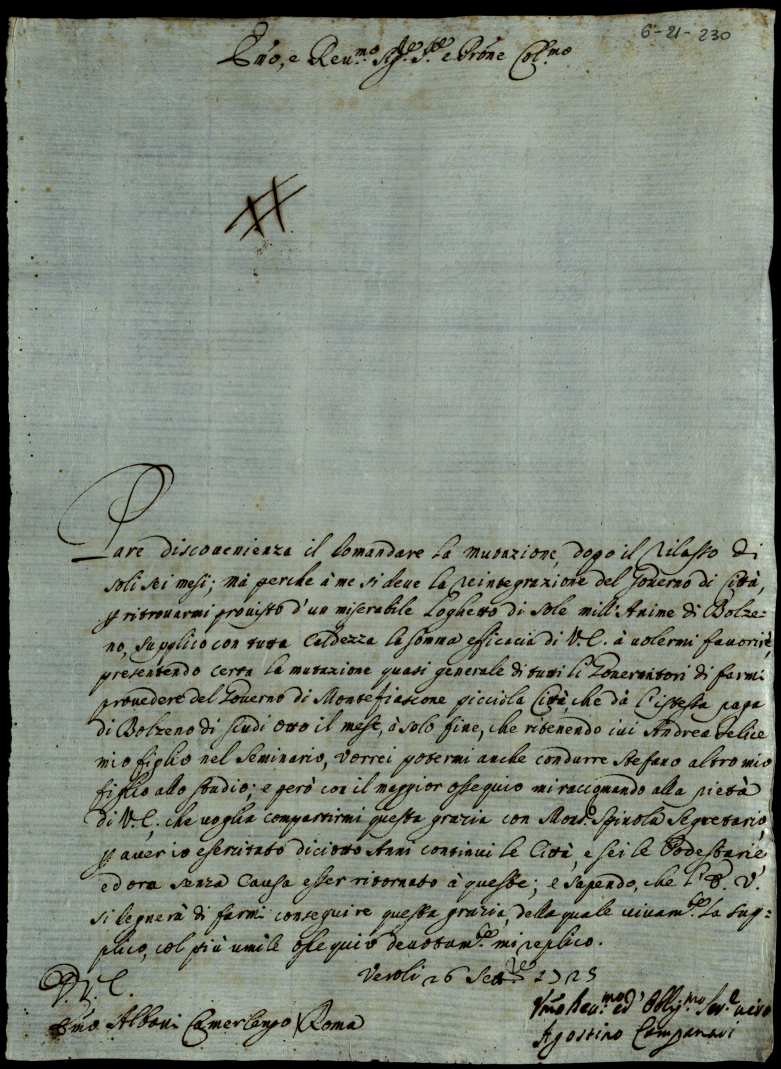 6-21-230
Emo, e Reu.mo Sig.re Sig.re e Prone Col.mo
Pare disconuenienza il domandare la mutazione, dopo il rilasso di
soli sei mesi; mà perche à me si deue la reintegrazione del Gouerno di Città,
p ritrouarmi prouisto d'un miserabile loghetto di sole mill'Anime di Bolze=
no, supplico con tutta Caldezza la somma efficacia di V.E. à uolermi fauorire,
presentendo certa la mutazione quasi generale di tutti li Gouernatori di farmi
prouedere del Gouerno di Montefiascone picciola Città che dà l'istessa paga
di Bolzeno di scudi otto il mese, à solo fine, che ritenendo iui Andrea Felice
mio figlio nel Seminario, vorrei potermi anche condurre Stefano altro mio
figlio allo studio; e però con il maggior ossequio mi raccomando alla pietà
di V.E. che uoglia compartirmi questa grazia con Mons. Spinola Segretario,
p auer io esercitato diciotto Anni continui le Città, e sei le Podestarie,
ed ora senza Causa esser ritornato à queste; e sapendo, che l'E.V.
si degnerà di farmi conseguire questa grazia, della quale uiuam.te la sup=
plico, col più umile ossequio deuotam.te mi replico.
Veroli 26 Sett.re 1725
D.V.E.
Emo Albani Camerlengo Roma
Vmo Deu.mo ed Obblig.mo Ser.e uero
Agostino Campanari